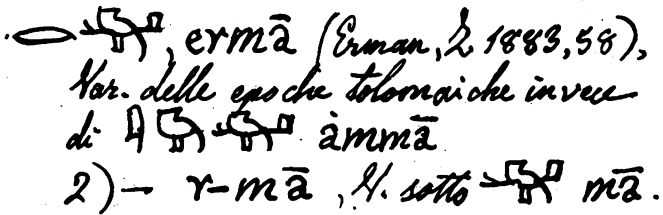 , ermā (Erman, Z 1883, 58),
Var. delle epoche tolomaiche invece
di àmmā
2) — r-mā, V. sotto mā.